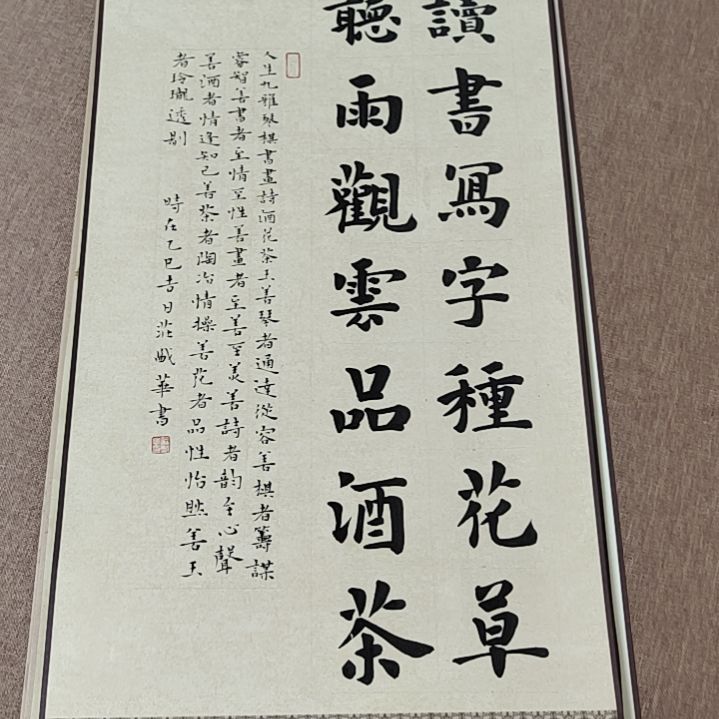 讀書寫字種花草
聽雨觀雲品酒茶
人生九雅琴棋書畫詩酒花茶玉善琴者通達從容善棋者籌謀
睿智善書者至情至性善畫者至善至美善詩者韵至心聲
善酒者情逢知己善茶者陶冶情操善花者品性怡然善玉
者玲瓏透剔
時在乙巳吉日莊 華書